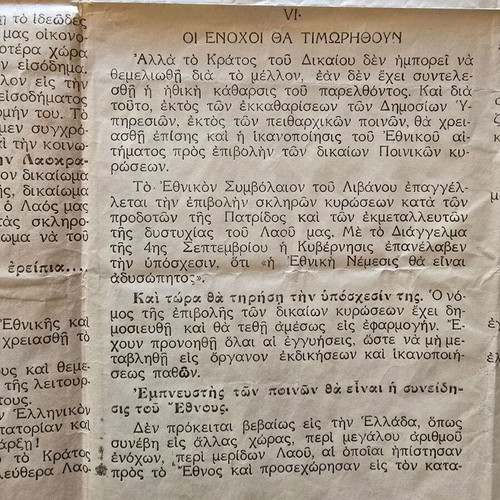 ῃ τὸ ἰδεῶδες
μας οἰκονο-
οτέρα χώρα
ν εἰσόδημα.
λον εἰς τὴν
εἰσοδήματος
μήν του. Τὸ
μεν συγχρό-
αὶ τὴν κοινω-
ὴν Λαοκρα-
ον δικαίωμα
ῆς, δικαίωμα
ὁ Λαός μας
τὰς σκληρο-
ωμα νὰ τοῦ
ἐρείπια....
Ἐθνικῆς καὶ
χρειασθῇ τὸ
υς καὶ θεμε-
τῆς λειτουρ-
τους.
ν Ἑλληνικὸν
τατορίαν καὶ
άρξῃ!
τὸ Κράτος
λεύθερα Λαο-
VI.
ΟΙ ΕΝΟΧΟΙ ΘΑ ΤΙΜΩΡΗΘΟΥΝ
Ἀλλὰ τὸ Κράτος τοῦ Δικαίου δὲν ἠμπορεῖ νὰ
θεμελιωθῇ διὰ τὸ μέλλον, ἐὰν δὲν ἔχει συντελε-
σθῇ ἡ ἠθικὴ κάθαρσις τοῦ παρελθόντος. Καὶ διὰ
τοῦτο, ἐκτὸς τῶν ἐκκαθαρίσεων τῶν Δημοσίων Ὑ-
πηρεσιῶν, ἐκτὸς τῶν πειθαρχικῶν ποινῶν, θὰ χρει-
ασθῇ ἐπίσης καὶ ἡ ἱκανοποίησις τοῦ Ἐθνικοῦ αἰ-
τήματος πρὸς ἐπιβολὴν τῶν δικαίων Ποινικῶν κυ-
ρώσεων.
Τὸ Ἐθνικὸν Συμβόλαιον τοῦ Λιβάνου ἐπαγγέλ-
λεται τὴν ἐπιβολὴν σκληρῶν κυρώσεων κατὰ τῶν
προδοτῶν τῆς Πατρίδος καὶ τῶν ἐκμεταλλευτῶν
τῆς δυστυχίας τοῦ Λαοῦ μας. Μὲ τὸ Διάγγελμα
τῆς 4ης Σεπτεμβρίου ἡ Κυβέρνησις ἐπανέλαβεν
τὴν ὑπόσχεσιν, ὅτι «ἡ Ἐθνικὴ Νέμεσις θὰ εἶναι
ἀδυσώπητος».
Καὶ τώρα θὰ τηρήσῃ τὴν ὑπόσχεσίν της. Ὁ νό-
μος τῆς ἐπιβολῆς τῶν δικαίων κυρώσεων ἔχει δη-
μοσιευθῆ καὶ θὰ τεθῇ ἀμέσως εἰς ἐφαρμογήν. Ἔ-
χουν προνοηθῆ ὅλαι αἱ ἐγγυήσεις, ὥστε νὰ μὴ με-
ταβληθῇ εἰς ὄργανον ἐκδικήσεων καὶ ἱκανοποιή-
σεως παθῶν.
Ἐμπνευστὴς τῶν ποινῶν θὰ εἶναι ἡ συνείδη-
σις τοῦ Ἔθνους.
Δὲν πρόκειται βεβαίως εἰς τὴν Ἑλλάδα, ὅπως
συνέβη εἰς ἄλλας χώρας, περὶ μεγάλου ἀριθμοῦ
ἐνόχων, περὶ μερίδων Λαοῦ, αἱ ὁποῖαι ἠπίστησαν
πρὸς τὸ Ἔθνος καὶ προσεχώρησαν εἰς τὸν κατα-